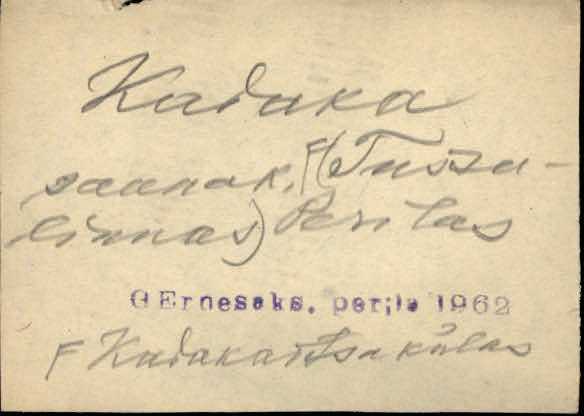 Kadaka
saunak, F(Tussa-
linnas) Perilas
G Ernesaks. per;la 1962
F Kadakaotsa külas